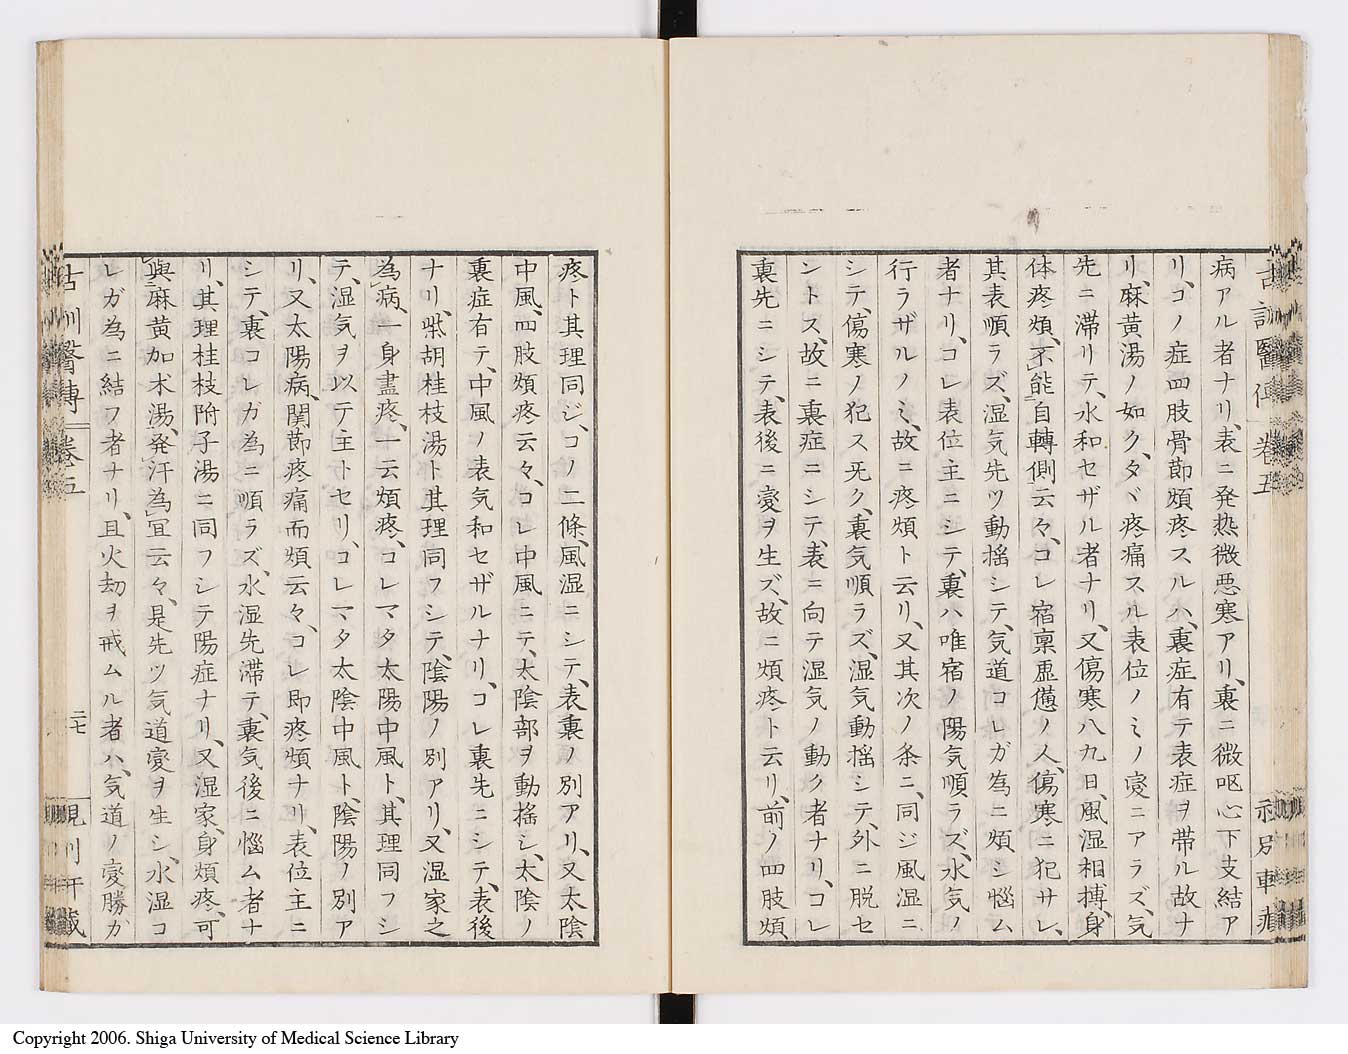 古訓醫傳 卷五
病アル者ナリ、表ニ発热微悪寒アリ、裏ニ微呕心下支結ア
リ、コノ症四肢骨節煩疼スルハ、裏症有テ表症ヲ帯ル故ナ
リ、麻黄湯ノ如ク、タヾ疼痛スル表位ノミノ変ニアラズ、気
先ニ滞リテ、水和セザル者ナリ、又傷寒八九日、風湿相搏、身
体疼煩、不能自轉側云々、コレ宿稟虚憊ノ人、傷寒ニ犯サレ、
其表順ラズ、湿気先ツ動揺シテ、気道コレガ為ニ煩シ悩ム
者ナリ、コレ表位主ニシテ、裏ハ唯宿ノ陽気順ラズ、水気ノ
行ラザルノミ、故ニ疼煩ト云リ、又其次ノ条ニ、同ジ風湿ニ
シテ、傷寒ノ犯ス旡ク、裏気順ラズ、湿気動揺シテ、外ニ脱セ
ントス、故ニ裏症ニシテ、表ニ向テ湿気ノ動ク者ナリ、コレ
裏先ニシテ、表後ニ変ヲ生ズ、故ニ煩疼ト云リ、前ノ四肢煩
疼ト其理同ジ、コノ二條、風湿ニシテ、表裏ノ別アリ、又太陰
中風、四肢煩疼云々、コレ中風ニテ、太陰部ヲ動揺シ、太陰ノ
裏症有テ、中風ノ表気和セザルナリ、コレ裏先ニシテ、表後
ナリ、柴胡桂枝湯ト其理同フシテ、陰陽ノ別アリ、又湿家之
為病、一身盡疼、一云煩疼、コレマタ太陽中風ト、其理同フシ
テ、湿気ヲ以テ主トセリ、コレマタ太陰中風ト、陰陽ノ別ア
リ、又太陽病、関節疼痛而煩云々、コレ即疼煩ナリ、表位主ニ
シテ、裏コレガ為ニ順ラズ、水湿先滞テ、裏気後ニ悩ム者ナ
リ、其理桂枝附子湯ニ同フシテ陽症ナリ、又湿家、身煩疼、可
與麻黄加朮湯、発汗為宜云々、是先ツ気道変ヲ生シ、水湿コ
レガ為ニ結フ者ナリ、且火劫ヲ戒ムル者ハ、気道ノ変勝ガ
古訓醫傳 卷五
二七
Copyright 2006. Shiga University of Medical Science Library